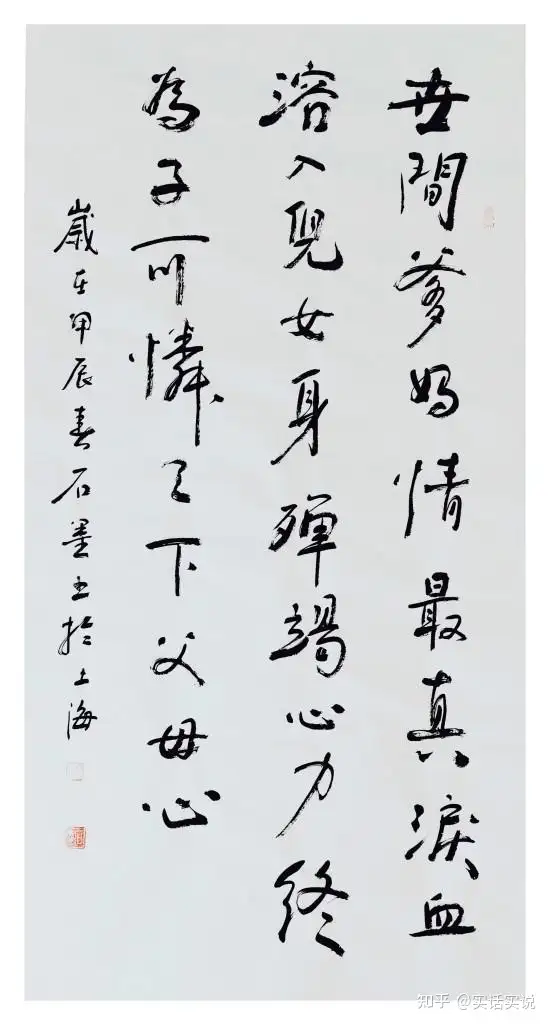 世間爹媽情最真淚血
溶入兒女身殫竭心力終
為子可憐天下父母心
歲在甲辰春石墨書於上海
知乎 @实话实说